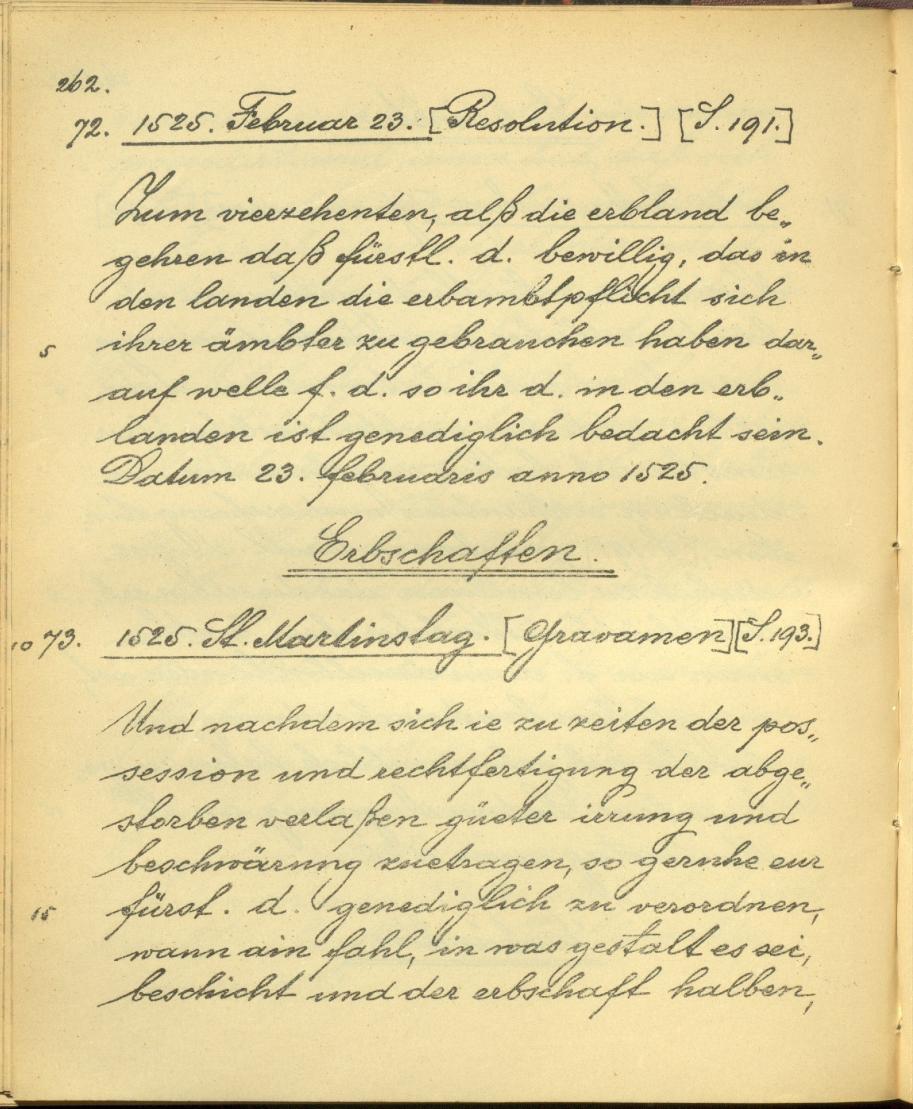 262.
72. 1525. Februar 23. [Resolution.] [S. 191.]
Zum vierzehenten, alß die erbland be„
gehren daß fürstl. d. bewillig, das in
den landen die erbambtpflicht sich
5 ihrer ämbter zu gebrauchen haben dar„
auf welle f. d. so ihr d. in den erb„
landen ist genediglich bedacht sein.
Datum 23. februaris anno 1525.
Erbschaften.
10 73. 1525. St. Martinstag. [Gravamen] [S. 193.]
Und nachdem sich ie zu zeiten der pos„
session und rechtfertigung der abge„
storben verlaßen güeter irrung und
beschwärung zuetragen, so geruhe eur
15 fürst. d. genediglich zu verordnen,
wann ain fahl, in was gestalt es sei,
beschicht und der erbschaft halben,